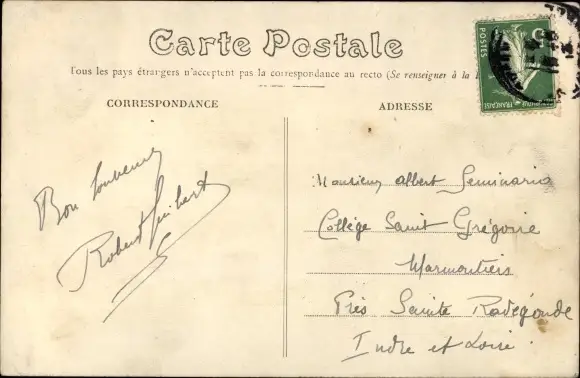 Carte Postale
Tous les pays étrangers n'acceptent pas la correspondance au recto (Se renseigner à la
CORRESPONDANCE
ADRESSE
Bon Souvenir
Robert Guibert
Monsieur Albert Seminario
Collège Saint Grégoire
Marmoutiers
Près Sainte Radégonde
Indre et Loire.
POSTES
FRANÇAISE
5